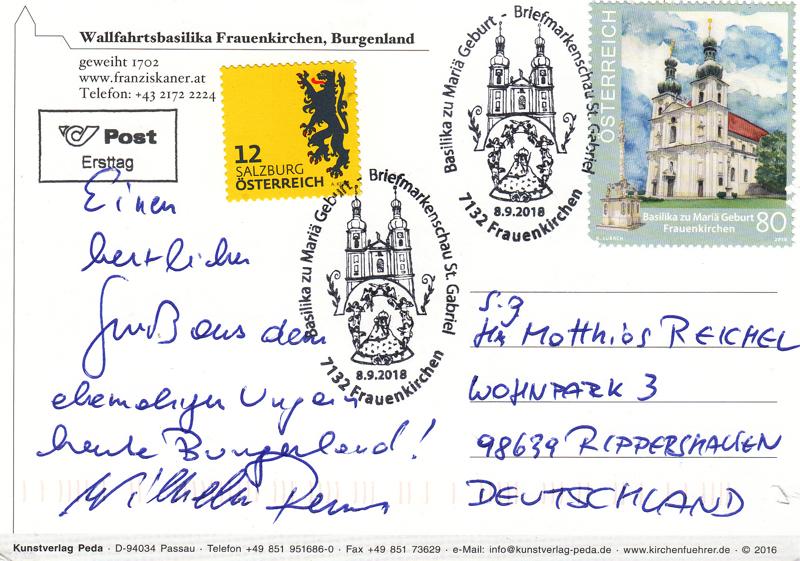 Wallfahrtsbasilika Frauenkirchen, Burgenland
geweiht 1702
www.franziskaner.at
Telefon: +43 2172 2224
Post
Ersttag
12
SALZBURG
ÖSTERREICH
Basilika zu Mariä Geburt - Briefmarkenschau St. Gabriel
8.9.2018
7132 Frauenkirchen
Basilika zu Mariä Geburt - Briefmarkenschau St. Gabriel
8.9.2018
7132 Frauenkirchen
ÖSTERREICH
Basilika zu Mariä Geburt
Frauenkirchen
80
2018
Einen
herzlichen
Gruß aus dem
ehemaligen Ungarn
heute Burgenland!
Wilhelm
S.g
Hr Matthias REICHEL
WOHNPARK 3
98639 RIPPERSHAUSEN
DEUTSCHLAND
Kunstverlag Peda · D-94034 Passau · Telefon +49 851 951686-0 · Fax +49 851 73629 · e-Mail: info@kunstverlag-peda.de · www.kirchenfuehrer.de · © 2016